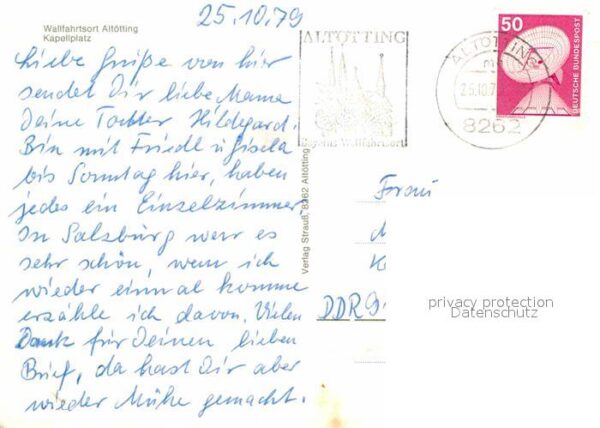 25.10.79
Wallfahrtsort Altötting
Kapellplatz
Liebe Grüße von hier
sendet Dir liebe Mama
Deine Tochter Hildegard.
Bin mit Friedl u Gisela
bis Sonntag hier, haben
jedes ein Einzelzimmer
In Salzburg war es
sehr schön, wenn ich
wieder einmal komme
erzähle ich davon. Vielen
Dank für Deinen lieben
Brief, da hast Dir aber
wieder Mühe gemacht.
ALTÖTTING
Bayerns Wallfahrtsort
ALTÖTTING
25.10.7
8262
50
DEUTSCHE BUNDESPOST
Verlag Strauß, 8262 Altötting
Frau
DDR
privacy protection
Datenschutz